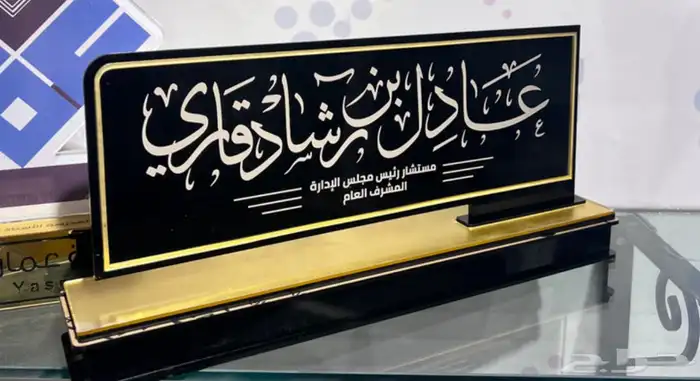 عادل بن رشاد قاري
مستشار رئيس مجلس الإدارة
المشرف العام
Yas
حراج